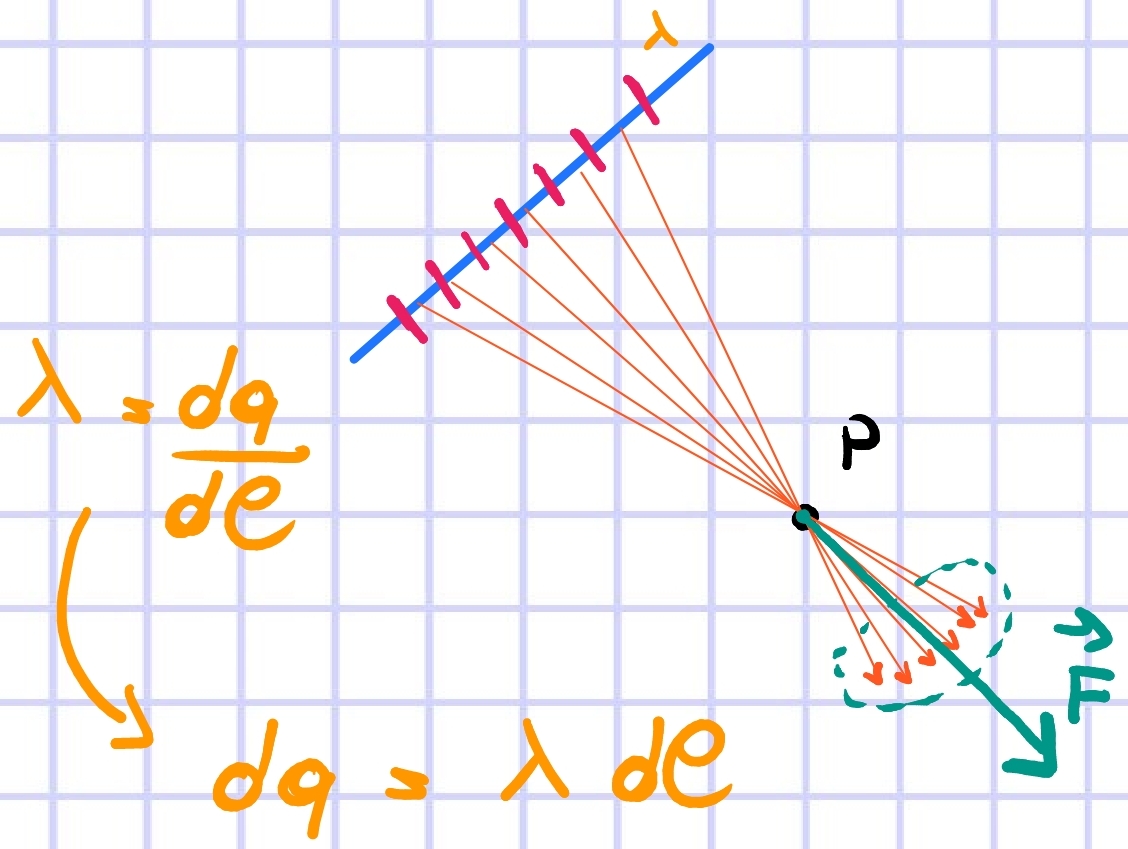 λ
λ = dq/dℓ
P
F⃗
dq = λ dℓ